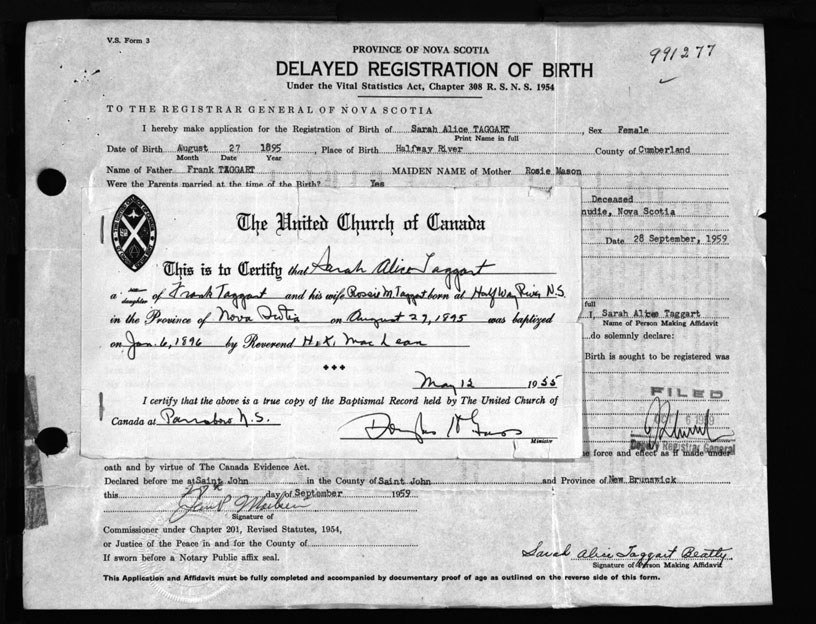 V.S. Form 3
991277
PROVINCE OF NOVA SCOTIA
DELAYED REGISTRATION OF BIRTH
Under the Vital Statistics Act, Chapter 308 R. S. N. S. 1954
TO THE REGISTRAR GENERAL OF NOVA SCOTIA
I hereby make application for the Registration of Birth of Sarah Alice TAGGART, Sex Female
Print Name in full
Date of Birth August 27 1895, Place of Birth Halfway River County of Cumberland
Month Date Year
Name of Father Frank TAGGART MAIDEN NAME of Mother Rosie Mason
Were the Parents married at the time of the Birth? Yes
Deceased
nudie, Nova Scotia
Date 28 September, 1959
The United Church of Canada
This is to Certify that Sarah Alice Taggart
a son daughter of Frank Taggart and his wife Rossie M. Taggart born at Half Way River, N.S.
in the Province of Nova Scotia on August 27, 1895 was baptized
on Jan. 6, 1896 by Reverend H. K. MacLean
May 12 1955
I certify that the above is a true copy of the Baptismal Record held by The United Church of
Canada at Parrsboro N.S.
Minister
full
I, Sarah Alice Taggart
Name of Person Making Affidavit
do solemnly declare:
Birth is sought to be registered was
FILED
Deputy Registrar General
force and effect as if made under
oath and by virtue of The Canada Evidence Act.
Declared before me at Saint John in the County of Saint John and Province of New Brunswick
this 28th day of September 1959
Signature of
Commissioner under Chapter 201, Revised Statutes, 1954,
or Justice of the Peace in and for the County of
If sworn before a Notary Public affix seal.
Sarah Alice Taggart Beatty
Signature of Person Making Affidavit
This Application and Affidavit must be fully completed and accompanied by documentary proof of age as outlined on the reverse side of this form.